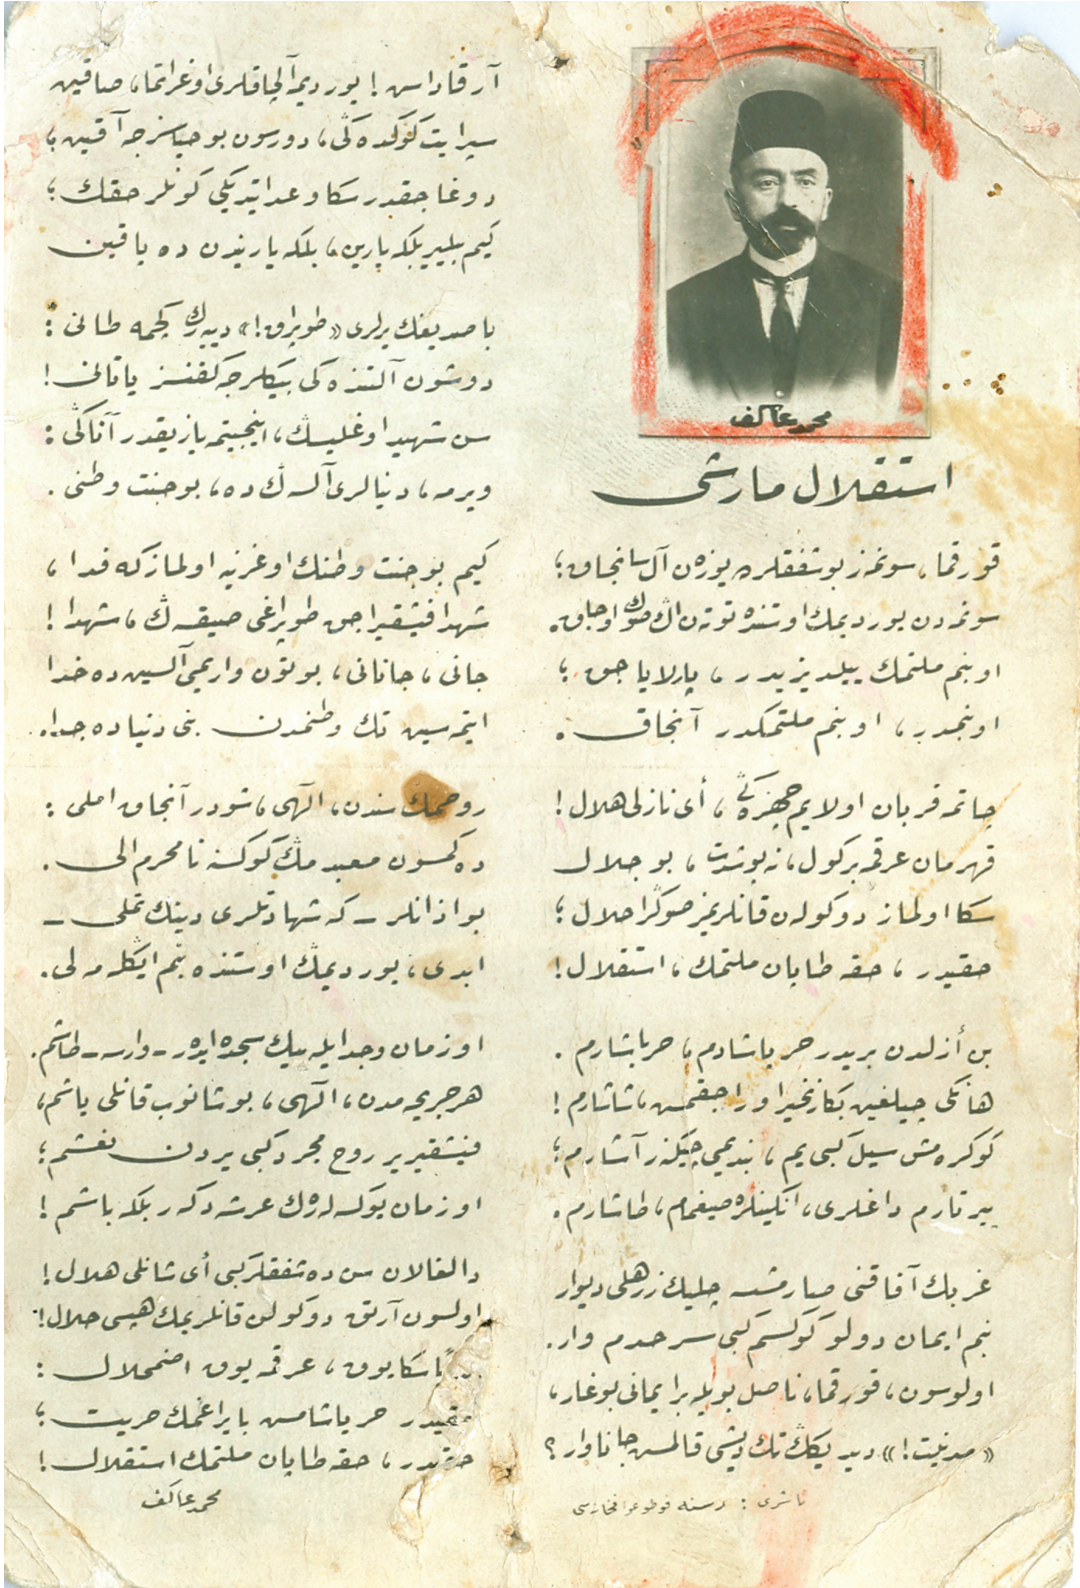 محمد عاكف
استقلال مارشى
قورقما، سونمز بو شفقلرده يوزن آل سانجاق؛
سونمه‌دن يورديمك اوستنده توتن اڭ صوڭ اوجاق.
او بنم ملتمك ييلديزيدر، پارلاياجق؛
او بنمدر، او بنم ملتمكدر آنجاق.
چاتمه قربان اولايم چهره‌ڭى، أى نازلى هلال!
قهرمان عرقمه بر كول، نه بو شدت، بو جلال
سكا اولماز دوكولن قانلريمز صوڭرا حلال؛
حقيدر، حقه طاپان ملتمك، استقلال!
بن أزلدن بريدر حر ياشادم، حر ياشارم.
هانكى چيلغين بكا زنجير اوراجقمش، شاشارم!
كوكره‌مش سيل كبى يم، بنديمى چيكنر آشارم؛
ييرتارم داغلرى، انكينلره صيغمام، طاشارم.
غربك آفاقنى صارمشسه چليك زرهلى ديوار
بنم ايمان دولو كوكسم كبى سرحدم وار.
اولوسون، قورقما، ناصل بويله بر ايمانى بوغار،
«مدنيت!» ديديكڭ تك ديشى قالمش جاناوار؟
ناشرى: رسنه فوطوغرافخانه‌سى
آرقاداش! يورديمه آلچاقلرى اوغراتما، صاقين
سپر ايت كوكده‌ڭى، دورسون بو حياسزجه آقين؛
دوغاجقدر سكا وعد ايتديكى كونلر حقك؛
كيم بيلير بلكه يارين، بلكه ياريندن ده ياقين
باصديغك يرلرى «طوپراق!» ديه‌رك كچمه طانى:
دوشون آلتنده كى بيكلرجه كفنسز ياتانى!
سن شهيد اوغليسڭ، اينجيتمه يازيقدر آتاڭى:
ويرمه، دنيالرى آلسه‌ڭ ده، بو جنت وطنى.
كيم بو جنت وطنك اوغرينه اولمازكه فدا،
شهدا فيشقيراجق طوپراغى صيقسه‌ڭ، شهدا!
جانى، جانانى، بوتون واريمى آلسين ده خدا
ايتمه‌سين تك وطنمدن بنى دنياده جدا.
روحمك سندن، الهى، شودر آنجاق املى:
دكمسون معبدمڭ كوكسنه نامحرم الى.
بو اذانلر ـ كه شهادتلرى دينك تملى ـ
ابدى، يورديمڭ اوستنده بنم ايكله‌مه‌لى.
او زمان وجد ايله بيك سجده ايدر ـ وارسه ـ طاشم.
هر جريحه‌مدن، الهى، بوشانوب قانلى ياشم،
فيشقيرير روح مجرد كبى يردن نعشم؛
او زمان يوكسله‌رك عرشه دكر بلكه باشم!
دالغالان سن ده شفقلر كبى أى شانلى هلال!
اولسون آرتق دوكولن قانلريمك هپسى حلال!
سكا يوق، عرقمه يوق اضمحلال:
حقيدر حر ياشامش بايراغمك حريت؛
حقيدر، حقه طاپان ملتمك استقلال!
محمد عاكف